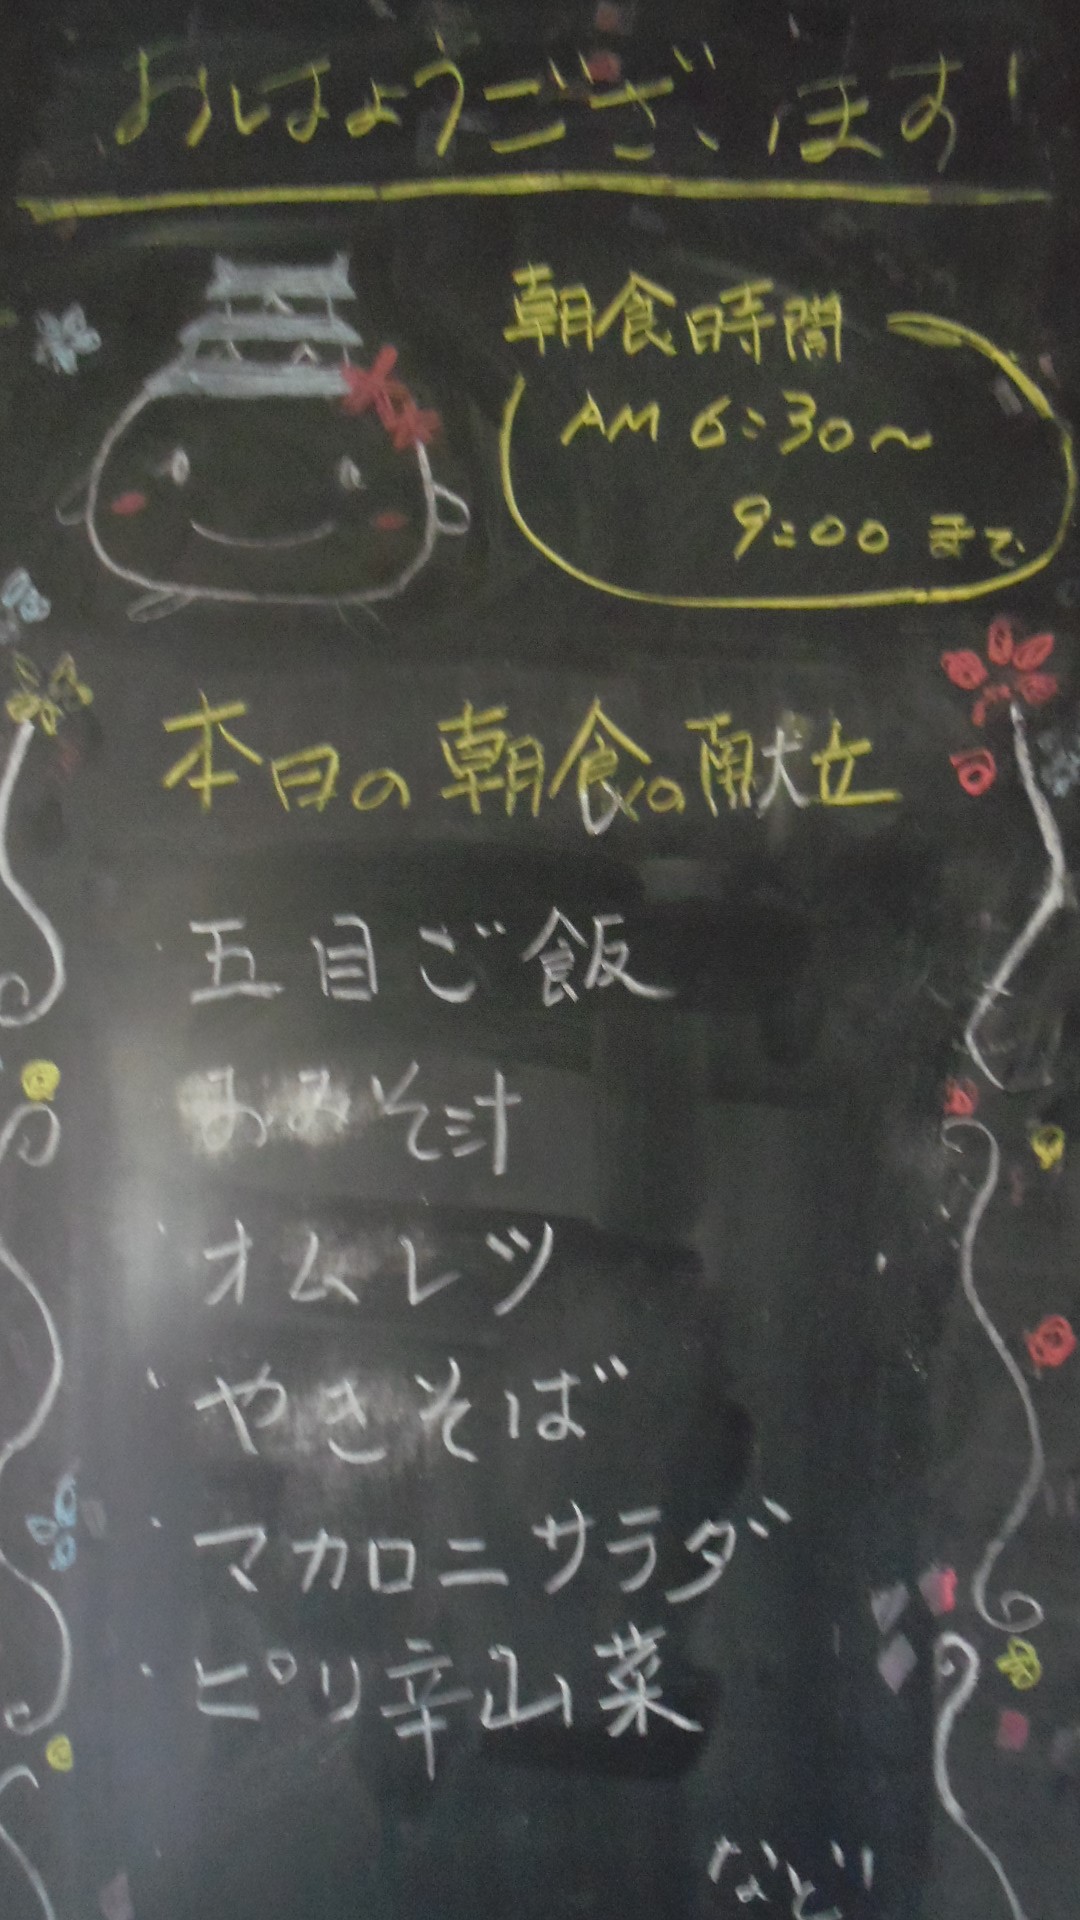 おはようございます!
朝食時間
AM 6:30〜
9:00 まで
本日の朝食の献立
・五目ご飯
おみそ汁
・オムレツ
・やきそば
・マカロニサラダ
・ピリ辛山菜
など